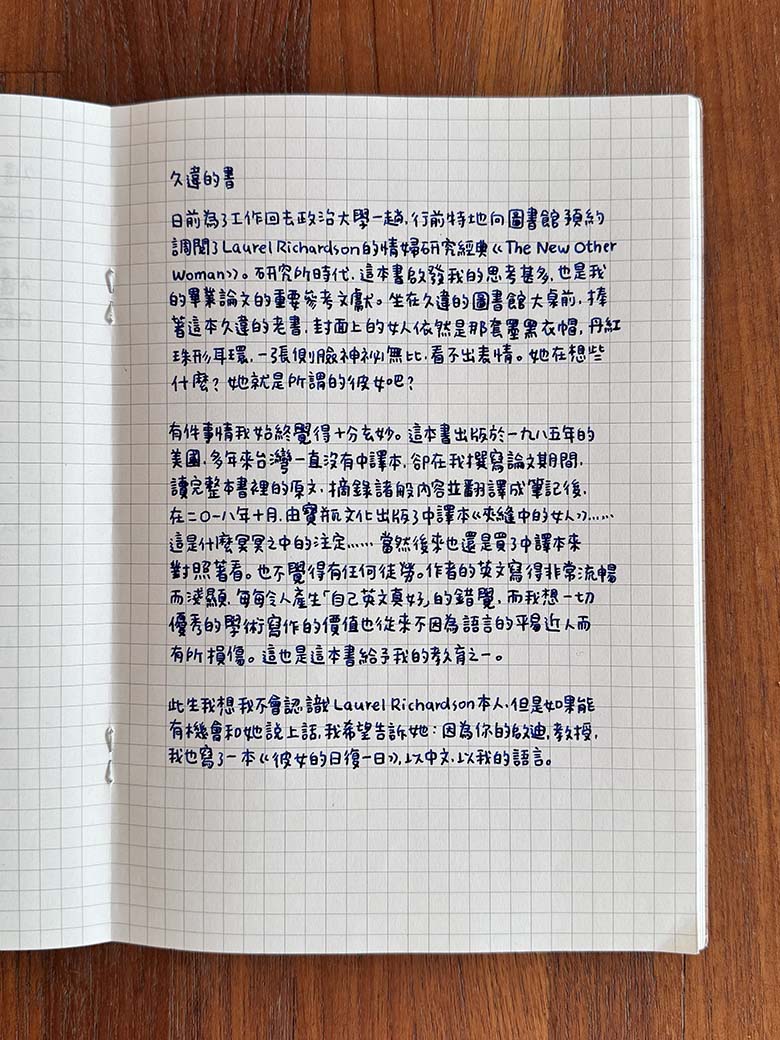 久違的書
日前為了工作回去政治大學一趟,行前特地向圖書館預約
調閱了Laurel Richardson的情婦研究經典《The New Other
Woman》。研究所時代,這本書啟發我的思考甚多,也是我
的畢業論文的重要參考文獻。坐在久違的圖書館大桌前,捧
著這本久違的老書,封面上的女人依然是那套墨黑衣帽,丹紅
珠形耳環,一張側臉神祕無比,看不出表情。她在想些
什麼?她就是所謂的彼女吧?
有件事情我始終覺得十分玄妙。這本書出版於一九八五年的
美國,多年來台灣一直沒有中譯本,卻在我撰寫論文期間,
讀完整本書裡的原文,摘錄諸般內容並翻譯成筆記後,
在二〇一八年十月,由寶瓶文化出版了中譯本《夾縫中的女人》……
這是什麼冥冥之中的注定……當然後來也還是買了中譯本來
對照著看。也不覺得有任何徒勞。作者的英文寫得非常流暢
而淺顯,每每令人產生「自己英文真好」的錯覺,而我想一切
優秀的學術寫作的價值也從來不因為語言的平易近人而
有所損傷。這也是這本書給予我的教育之一。
此生我想我不會認識Laurel Richardson本人,但是如果能
有機會和她說上話,我希望告訴她:因為你的啟迪,教授,
我也寫了一本《彼女的日復一日》,以中文,以我的語言。